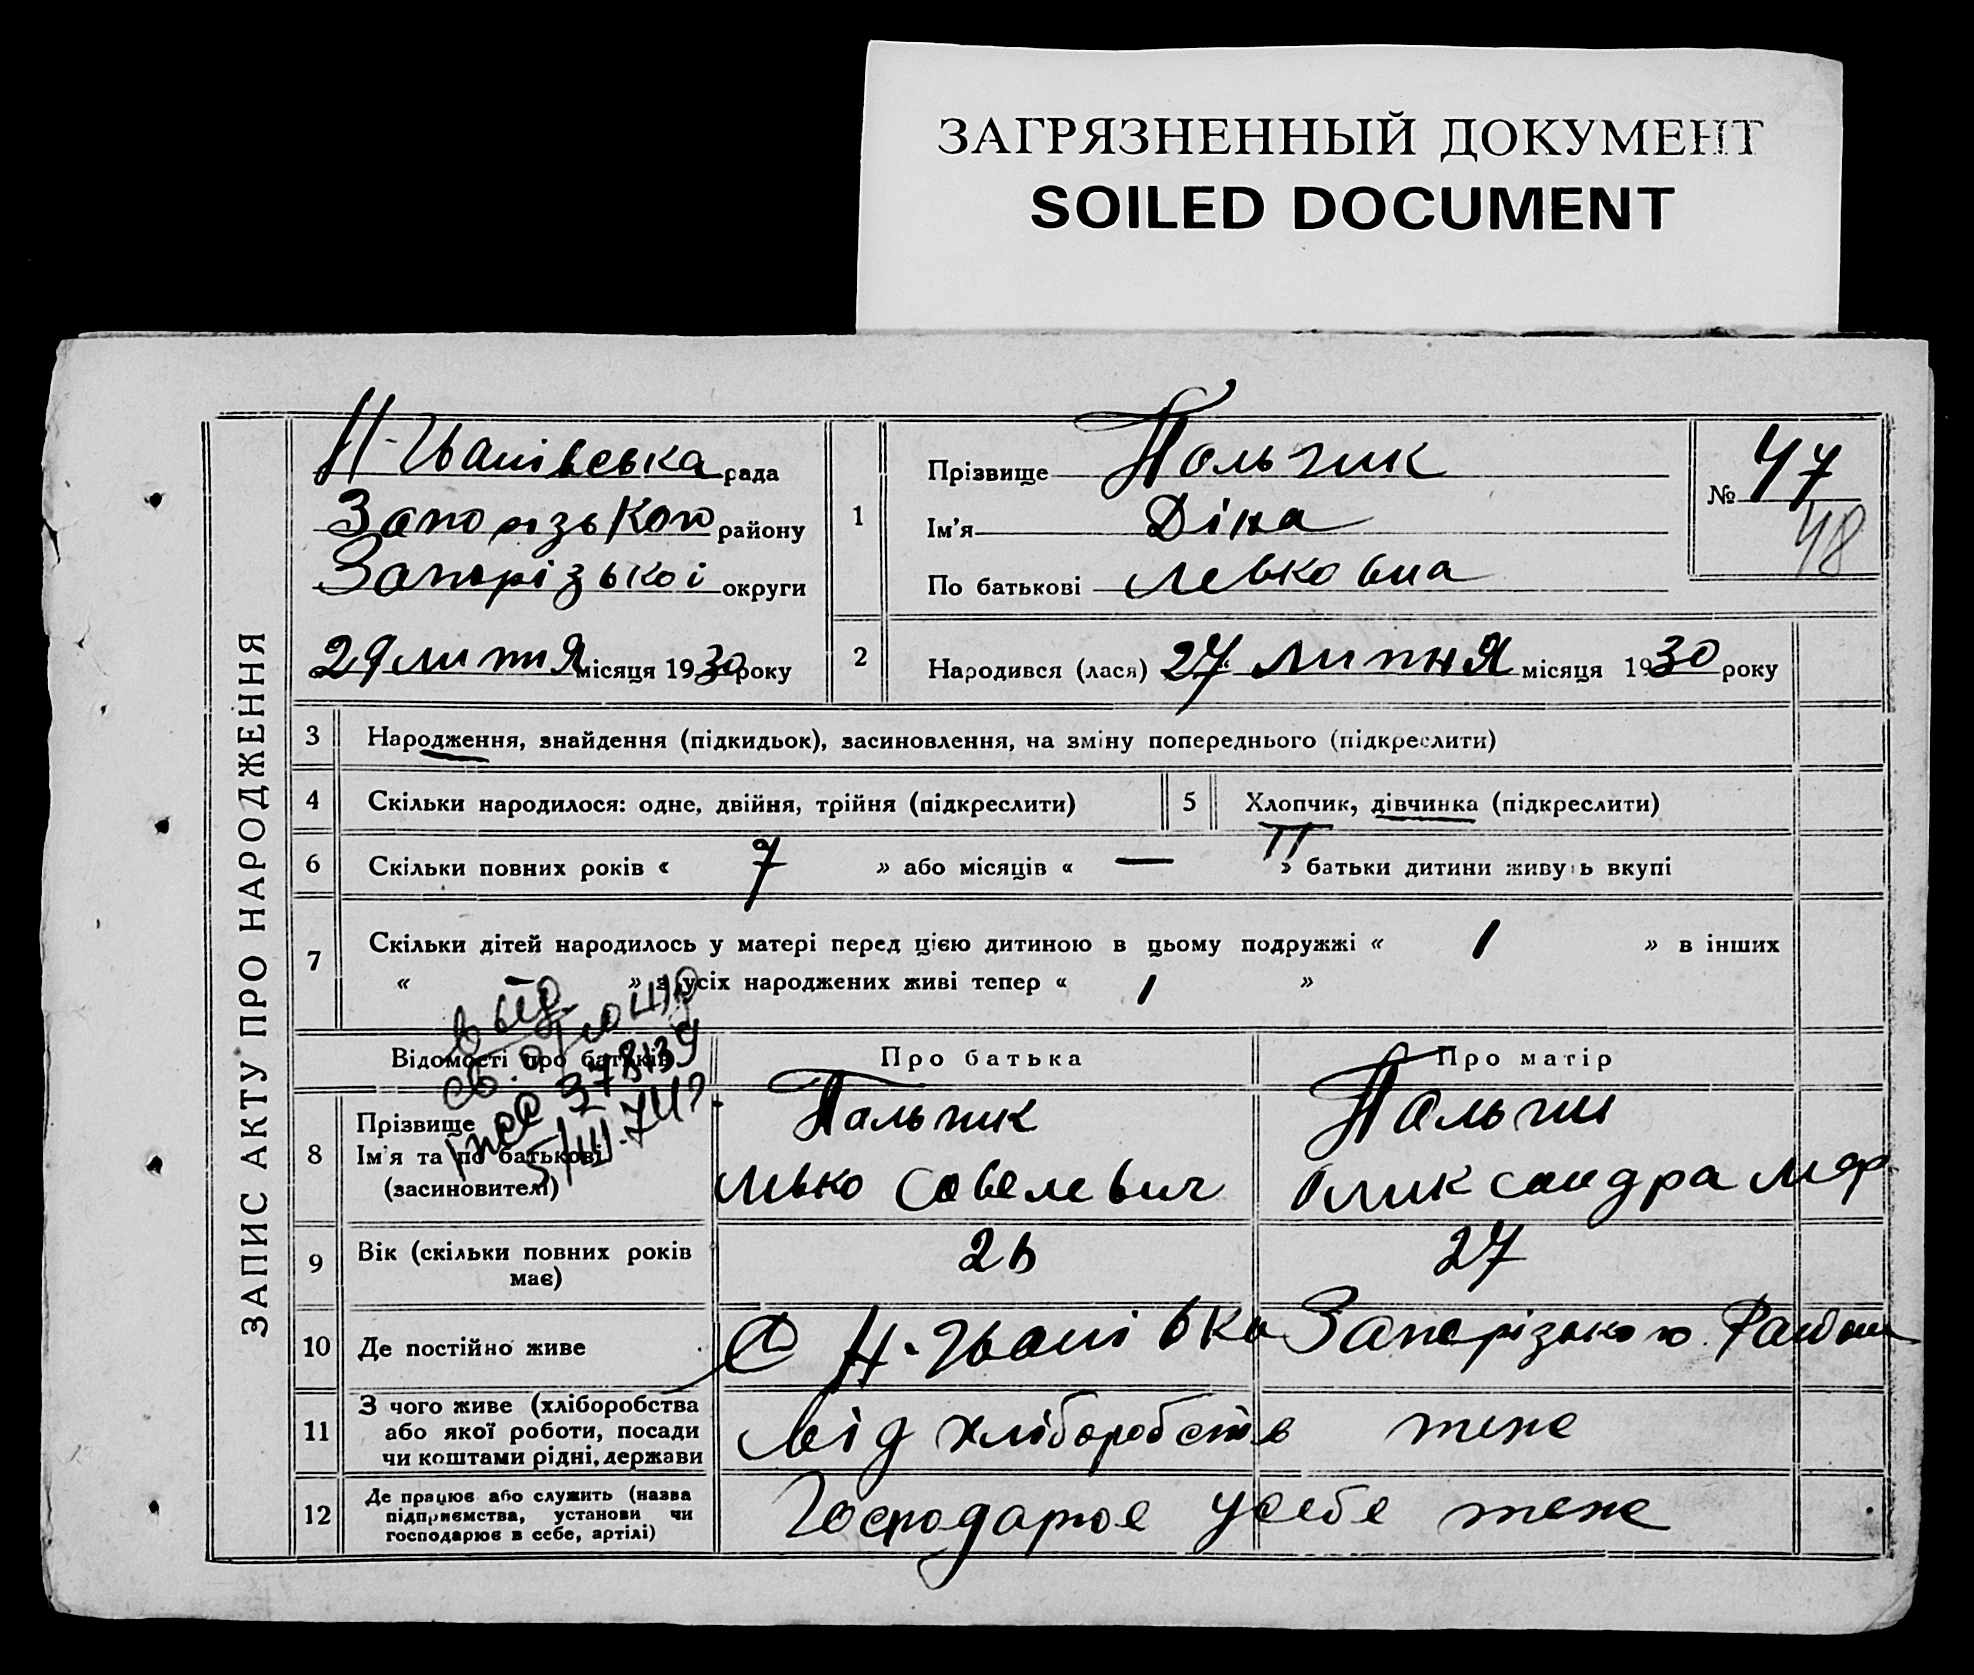 ЗАГРЯЗНЕННЫЙ ДОКУМЕНТ
SOILED DOCUMENT
ЗАПИС АКТУ ПРО НАРОДЖЕННЯ
Н-Іванівська рада
Запорізького району
Запорізької округи
29 липня місяця 1930 року
1
Прізвище Польчик
Ім'я Діна
По батькові Левковна
№ 47
48
2
Народився (лася) 27 липня місяця 1930 року
3 Народження, знайдення (підкидьок), засиновлення, на зміну попереднього (підкреслити)
4 Скільки народилося: одне, двійня, трійня (підкреслити)
5 Хлопчик, дівчинка (підкреслити)
6 Скільки повних років « 7 » або місяців « — » батьки дитини живуть вкупі
7 Скільки дітей народилось у матері перед цією дитиною в цьому подружжі « 1 » в інших
« - » з усіх народжених живі тепер « 1 »
Відомості про батьків
Про батька
Про матір
8 Прізвище
Ім'я та по батькові
(засиновителі)
Пальчик
Левко Савелевич
Пальчи
Олександра
9 Вік (скільки повних років
має)
26
27
10 Де постійно живе
С Н-Іванівка Запорізького Району
11 З чого живе (хліборобства
або якої роботи, посади
чи коштами рідні, держави
від хліборобств теж
12 Де працює або служить (назва
підприємства, установи чи
господарює в себе, артілі)
Господарює у себе теж
5/III-74